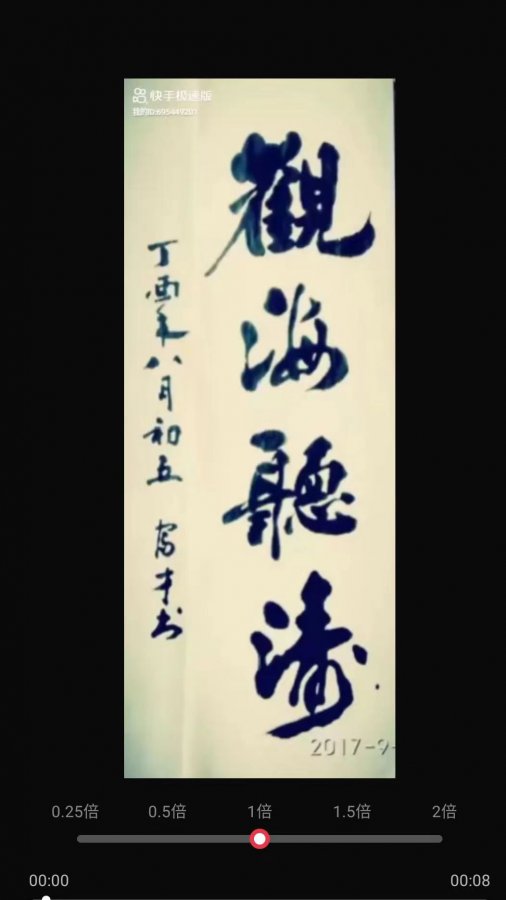 快手极速版
我的ID:695449201
觀海聽濤
丁酉年八月初五 富才书
2017-9-
0.25倍 0.5倍 1倍 1.5倍 2倍
00:00 00:08